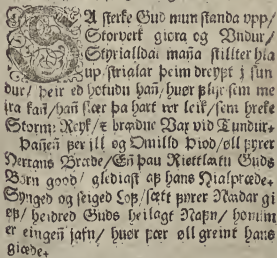 SA sterke Gud mun standa vpp/
Storverk giora og Vndur/
Styrialldar mana stillter hia
up/strialar þeim dreypt i sun
dur/þeir ed hotudu han/huer flyr sem me
ira kan/han slær þa hart ver leik/sem hreke
Storm: Reyk/z brædne Vax vid Tundur.
Þanen fer ill og Omilld Þiod/oll fyrer
Herrans Bræde/En þau Riettlatu Guds
Børn good/glediast af hans Hialpræde.
Synged og seiged Lof/sætt fyrer Naadar gi
øf/heidred Guds heilagt Nafn/honum
er eingen jafn/huør fær øll greint hans
giæde.